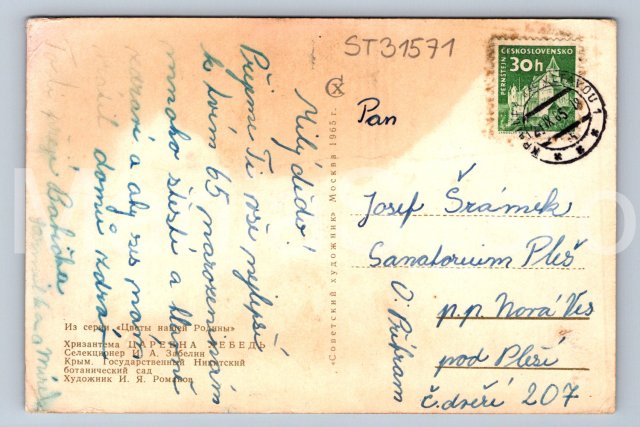 ST31571
ČESKOSLOVENSKO
30h
PERNŠTEJN
Pan
Josef Šrámek
Sanatorium Pleš
p.p. Nová Ves
pod Pleší
č. dveří 207
O. Příbram
Milý dědo!
Přejeme Ti vše nejlepší
k tvým 65 narozeninám
mnoho štěstí a hlavně
zdraví a aby ses nám
domů
Babička
«Советский художник» Москва 1965 г.
Из серии «Цветы нашей Родины»
Хризантема ЦАРЕВНА ЛЕБЕДЬ
Селекционер И. А. Забелин
Крым. Государственный Никитский
ботанический сад
Художник И. Я. Романов